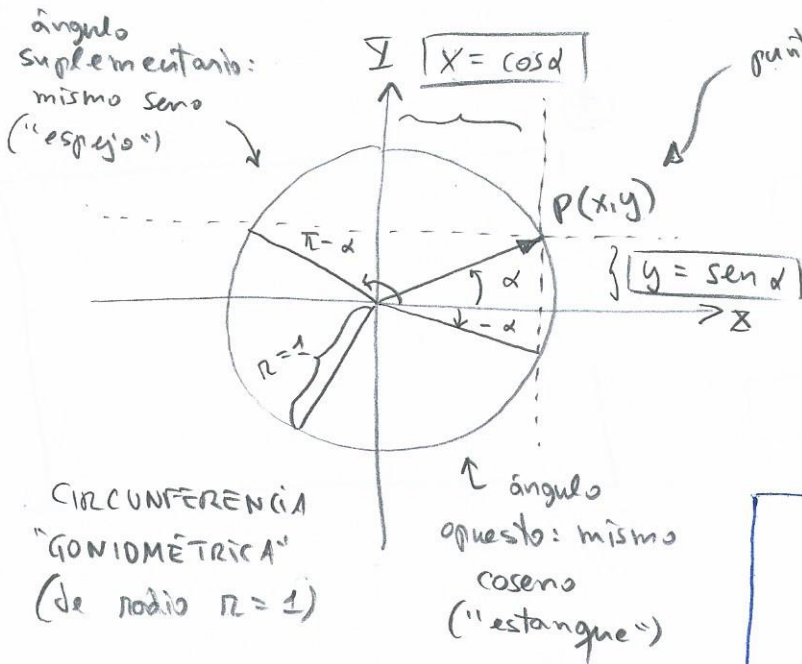 ángulo
suplementario:
mismo seno
("espejo")
Y
X = cos α
P(x,y)
π-α
α
y = sen α
-α
X
r=1
CIRCUNFERENCIA
"GONIOMÉTRICA"
(de radio r = 1)
ángulo
opuesto: mismo
coseno
("estanque")